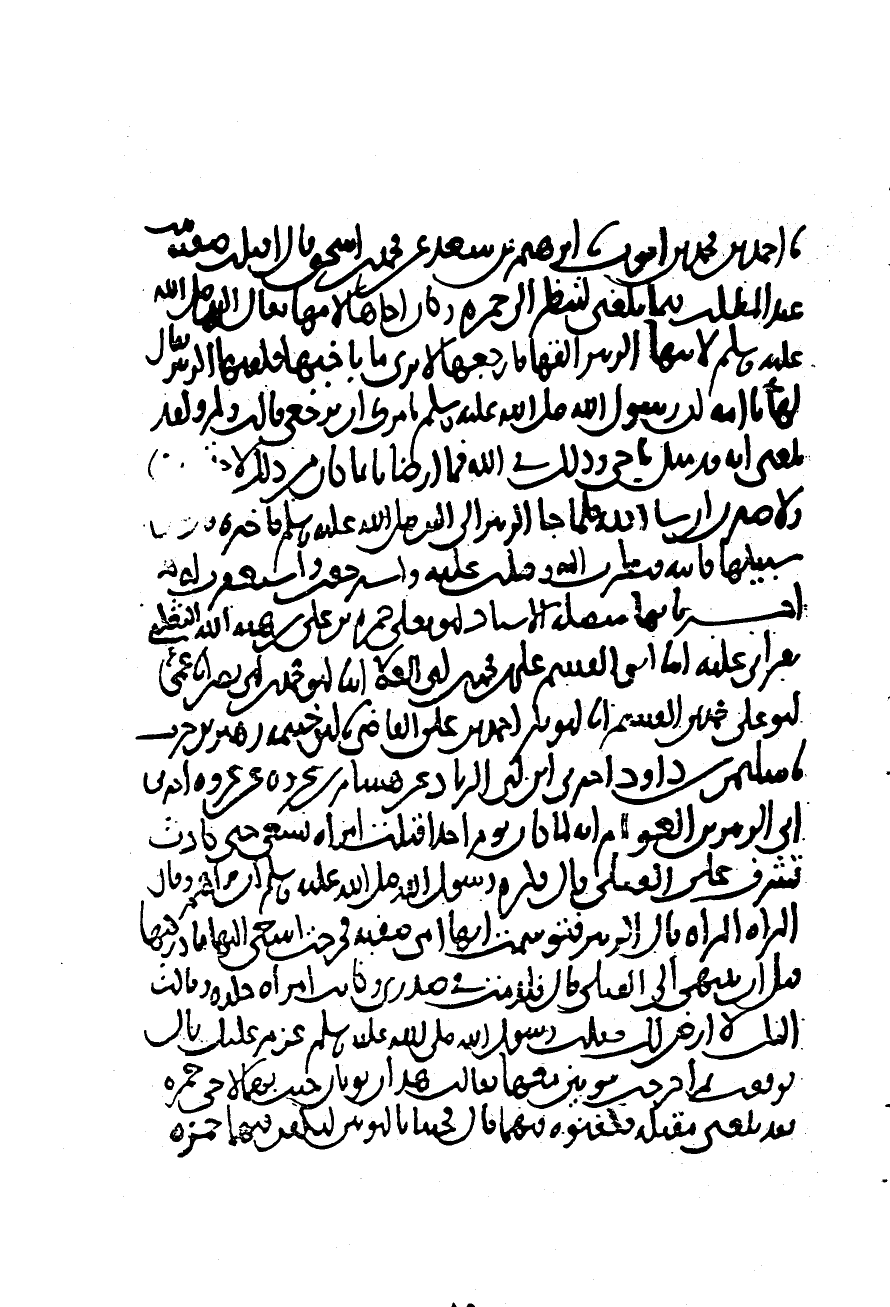 نا احمد بن محمد بن ايوب نا ابرهيم بن سعد عن محمد بن اسحق قال اقبلت صفيه
عبد المطلب فيما بلغني لتنظر الى حمزه وكان اخاها لامها فقال النبي صلى الله
عليه وسلم لابنها الزبير القها فارجعها لا ترى ما باخيها فلقيها الزبير فقال
لها يا امه ان رسول الله صلى الله عليه وسلم يامرك ان ترجعي قالت ولم ولقد
بلغني انه قد مثل باخي وذلك في الله فما ارضانا بما كان من ذلك لا
ولاصبرن ان شا الله فلما جا الزبير الى النبي صلى الله عليه وسلم فاخبره
سبيلها فاتته فنظرت اليه وصلت عليه واسترجعت واستغفرت له
اخبرنا بها متصله الاسناد ابو يعلى حمزه بن علي بن هبه الله الثعلبي
بقراتي عليه انا ابي القسم علي بن محمد بن ابي العلا انا ابو محمد بن ابي نصر انا عمي
ابو علي محمد بن القسم انا ابو بكر احمد بن علي القاضي نا ابو خيثمه زهير بن حرب
نا سليمن بن داود اخبرني ابن ابي الزناد عن هشام بن عروه عن عروه اخبرني
ابي الزبير بن العوام انه لما كان يوم احد اقبلت امراه تسعى حتى كادت
تشرف على القتلى قال فكره رسول الله صلى الله عليه وسلم ان تراهم وقال
المراه المراه قال الزبير فتوسمت انها امي صفيه فخرجت اسعى اليها فادركتها
قبل ان تنتهي الى القتلى قال فلدمت في صدري وكانت امراه جلده وقالت
اليك لا ارض لك فقلت رسول الله صلى الله عليه وسلم عزم عليك قال
فوقفت ثم اخرجت ثوبين معها فقالت هذان ثوبان جيت بهما لاخي حمزه
فقد بلغني مقتله فكفنوه فيهما قال فجينا بالثوبين ليكفن فيهما حمزه